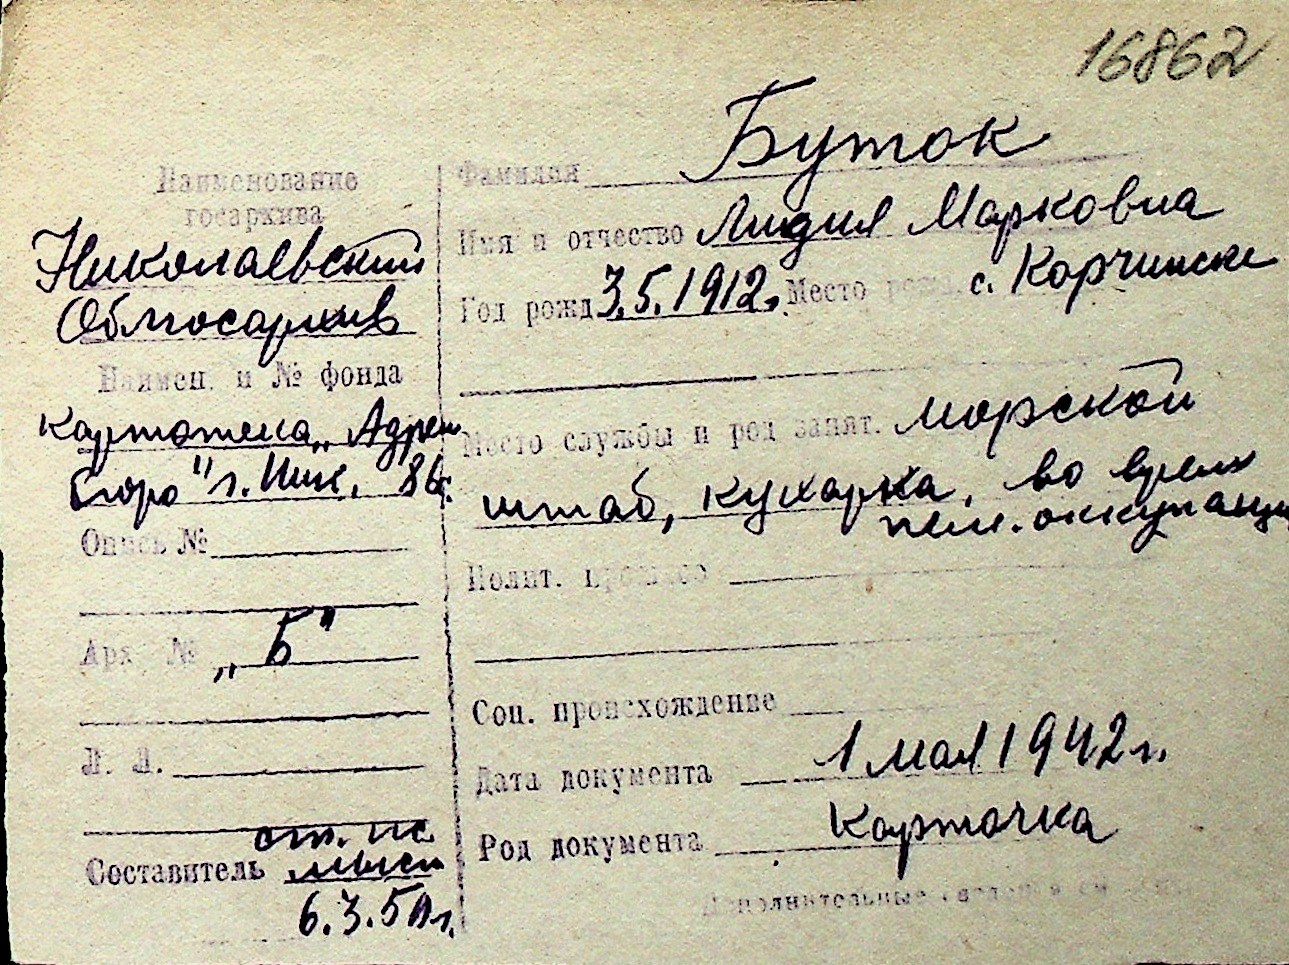 16862
Наименование
госархива
Николаевский
Облгосархив
Наимен. и № фонда
Картотека „Адрес
бюро" г. Ник.
Опись №
Арх. №
„Б"
Л. Л.
Составитель
6.3.50 г.
Фамилия Буток
Имя и отчество Лидия Марковна
Год рожд 3.5.1912г. Место рожд. с.
Место службы и род занят. морской
штаб, кухарка, во время
нем. оккупации
Полит. прошлое
Соц. происхождение
Дата документа 1 мая 1942 г.
Род документа Карточка
Дополнительные сведения